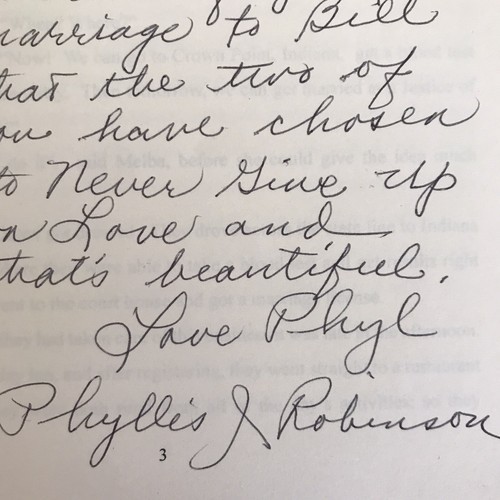 marriage to Bill
that the two of
you have chosen
to Never Give Up
on Love and
that's beautiful.
Love Phyl
Phyllis J Robinson
3